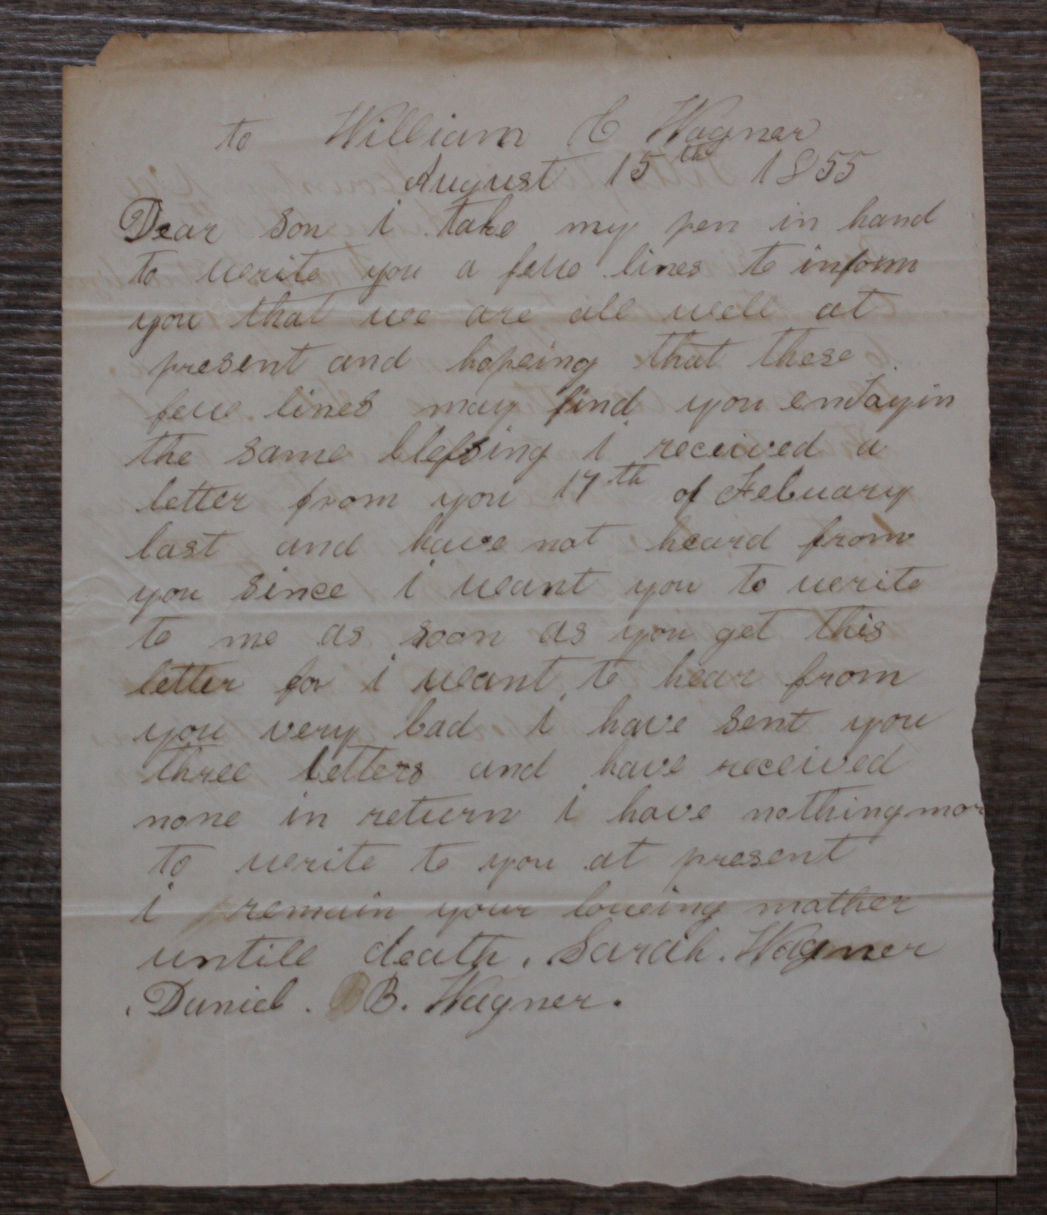 to William C Wagner
August 15th 1855
Dear son i take my pen in hand
to write you a few lines to inform
you that we are all well at
present and hopeing that these
few lines may find you enJoyin
the same blessing i received a
letter from you 17th of Febuary
last and have not heard from
you since i want you to write
to me as soon as you get this
letter for i want to hear from
you very bad i have sent you
three letters and have received
none in return i have nothing mor
to write to you at present
i remain your loveing mother
untill death. Sarah. Wagner
Daniel. B. Wagner.